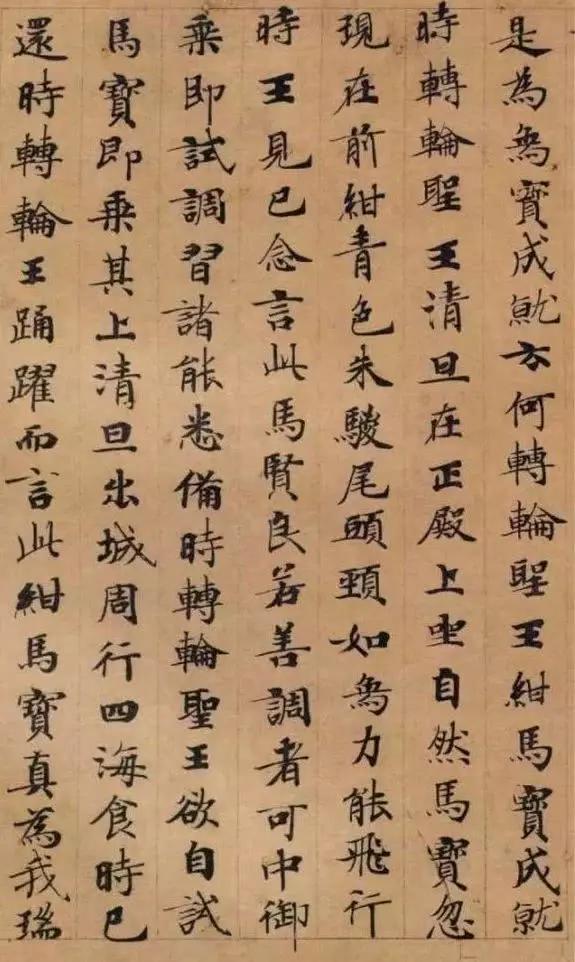 是為象寶成就云何轉輪聖王紺馬寶成就
時轉輪聖王清旦在正殿上坐自然馬寶忽
現在前紺青色朱駿尾頭頸如象力能飛行
時王見已念言此馬賢良若善調者可中御
乘即試調習諸能悉備時轉輪聖王欲自試
馬寶即乘其上清旦出城周行四海食時已
還時轉輪王踊躍而言此紺馬寶真為我瑞